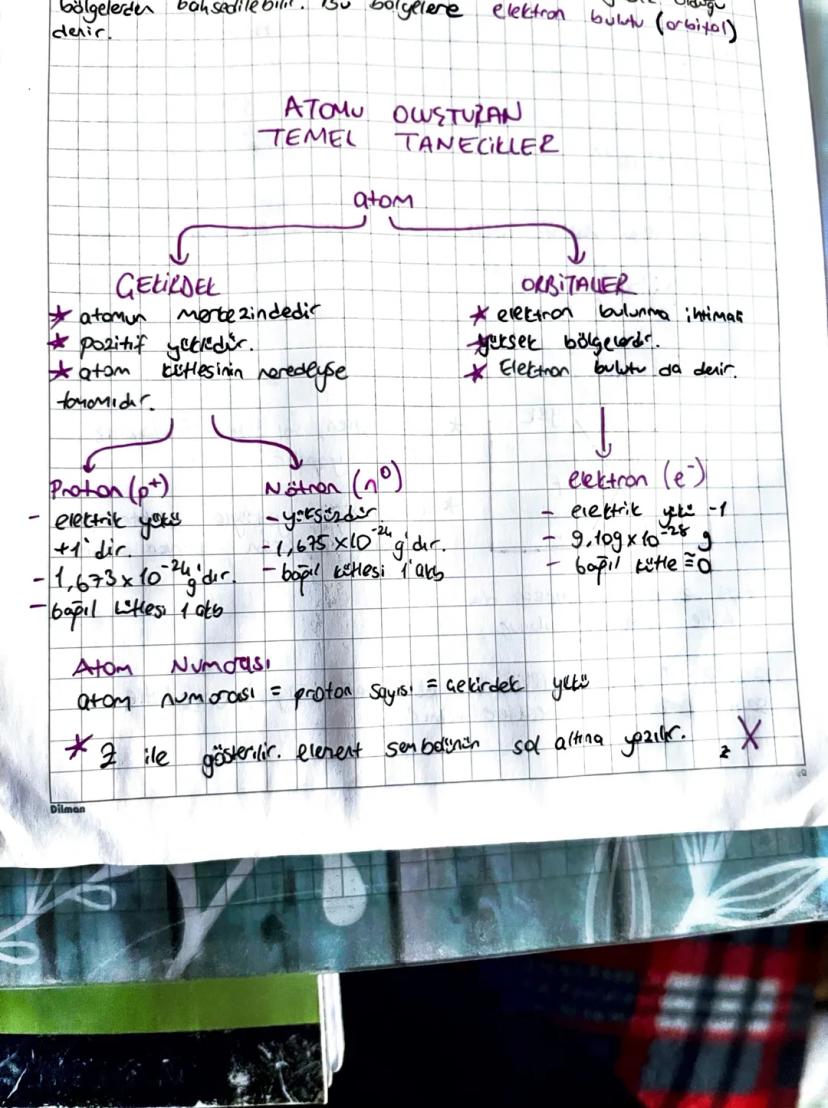 bölgelerden bahsedilebilir. Bu bölgelere elektron bulutu (orbital)
denir.
ATOMU OLUŞTURAN
TEMEL TANECİKLER
atom
ÇEKİRDEK
* atomun merkezindedir
* pozitif yüklüdür.
* atom kütlesinin neredeyse
tamamıdır.
ORBİTALLER
* elektron bulunma ihtimali
yüksek bölgelerdir.
* Elektron bulutu da denir.
Proton (p⁺)
- elektrik yükü
+1'dir.
- 1,673 x 10⁻²⁴ g'dır.
- bağıl kütlesi 1 akb
Nötron (n⁰)
- yüksüzdür
- 1,675 x 10⁻²⁴ g'dır.
- bağıl kütlesi 1 akb
elektron (e⁻)
- elektrik yükü -1
- 9,109 x 10⁻²⁸ g
- bağıl kütle ≅ 0
Atom Numarası
atom numarası = proton sayısı = çekirdek yükü
* Z ile gösterilir. element sembolünün sol altına yazılır. zX
Dilman